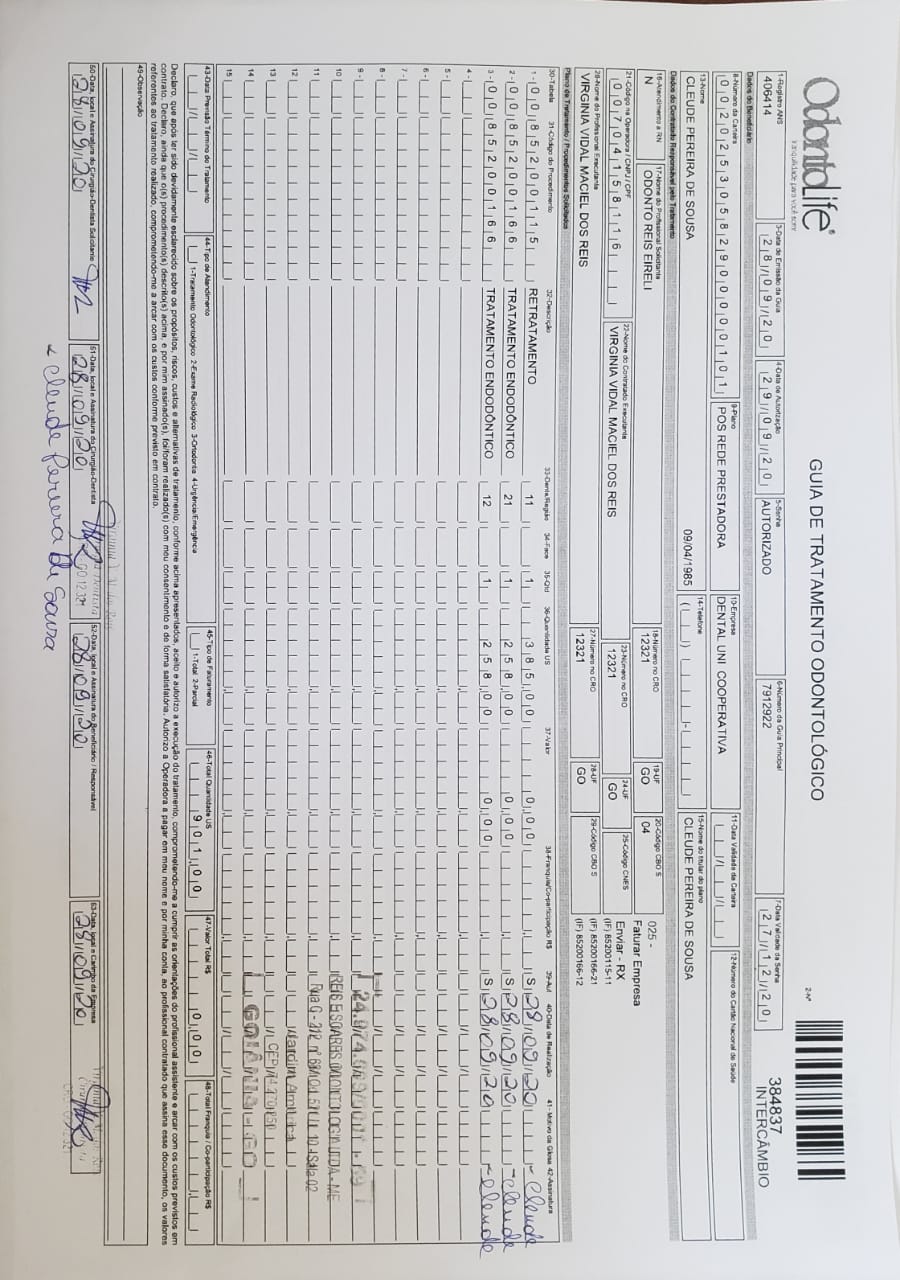 OdontoLife®
tranquilidade para você sorrir
GUIA DE TRATAMENTO ODONTOLÓGICO
2-Nº
384837
INTERCÂMBIO
1-Registro ANS
406414
3-Data de Emissão da Guia
28/09/20
4-Data de Autorização
29/09/20
5-Senha
AUTORIZADO
6-Número da Guia Principal
7912922
7-Data Validade da Senha
27/12/20
Dados do Beneficiário
8-Número da Carteira
00202530582900000101
9-Plano
POS REDE PRESTADORA
10-Empresa
DENTAL UNI COOPERATIVA
11-Data Validade da Carteira
12-Número do Cartão Nacional de Saúde
13-Nome
CLEUDE PEREIRA DE SOUSA
09/04/1985
14-Telefone
15-Nome do titular do plano
CLEUDE PEREIRA DE SOUSA
Dados do Contratado Responsável pelo Tratamento
16-Atendimento a RN
N
17-Nome do Profissional Solicitante
ODONTO REIS EIRELI
18-Número no CRO
12321
19-UF
GO
20-Código CBO S
04
025 -
Faturar Empresa
21-Código na Operadora / CNPJ / CPF
00704158116
22-Nome do Contratado Executante
VIRGINIA VIDAL MACIEL DOS REIS
23-Número no CRO
12321
24-UF
GO
25-Código CNES
Enviar - RX
(IF) 85200115-11
26-Nome do Profissional Executante
VIRGINIA VIDAL MACIEL DOS REIS
27-Número no CRO
12321
28-UF
GO
29-Código CBO S
(IF) 85200166-21
(IF) 85200166-12
Plano de Tratamento / Procedimentos Solicitados
30-Tabela 31-Código do Procedimento 32-Descrição 33-Dente/Região 34-Face 35-Qtd 36-Quantidade US 37-Valor 38-Franquia/Co-participação R$ 39-Aut 40-Data de Realização 41- Motivo da Glosa 42-Assinatura
1 - 00 85200115 RETRATAMENTO 11 1 385,00 0,00 S 28/09/20 Cleude
2 - 00 85200166 TRATAMENTO ENDODÔNTICO 21 1 258,00 0,00 S 28/09/20 Cleude
3 - 00 85200166 TRATAMENTO ENDODÔNTICO 12 1 258,00 0,00 S 28/09/20 Cleude
4 -
5 -
6 -
7 -
8 -
9 -
10
11
12
13
14
15
REIS E SOARES ODONTOLOGIA LTDA - ME
GOIÂNIA - GO
43-Data Previsão Término do Tratamento
44-Tipo de Atendimento
1-Tratamento Odontológico 2-Exame Radiológico 3-Ortodontia 4-Urgência/Emergência
45-Tipo de Faturamento
1-Total 2-Parcial
46-Total Quantidade US
901,00
47-Valor Total R$
0,00
48-Total Franquia / Co-participação R$
Declaro, que após ter sido devidamente esclarecido sobre os propósitos, riscos, custos e alternativas de tratamento, conforme acima apresentados, aceito e autorizo a execução do tratamento, comprometendo-me a cumprir as orientações do profissional assistente e arcar com os custos previstos em
contrato. Declaro, ainda que o(s) procedimento(s) descrito(s) acima, e por mim assinado(s), foi/foram realizado(s) com meu consentimento e de forma satisfatória. Autorizo a Operadora a pagar em meu nome e por minha conta, ao profissional contratado que assina esse documento, os valores
referentes ao tratamento realizado, comprometendo-me a arcar com os custos conforme previsto em contrato.
49-Observação
50-Data, local e Assinatura do Cirurgião-Dentista Solicitante
28/09/20
51-Data, local e Assinatura do Cirurgião-Dentista
28/09/20
52-Data, local e Assinatura do Beneficiário / Responsável
28/09/20
53-Data, local e Carimbo da Empresa
28/09/20
Cleude Pereira de Sousa